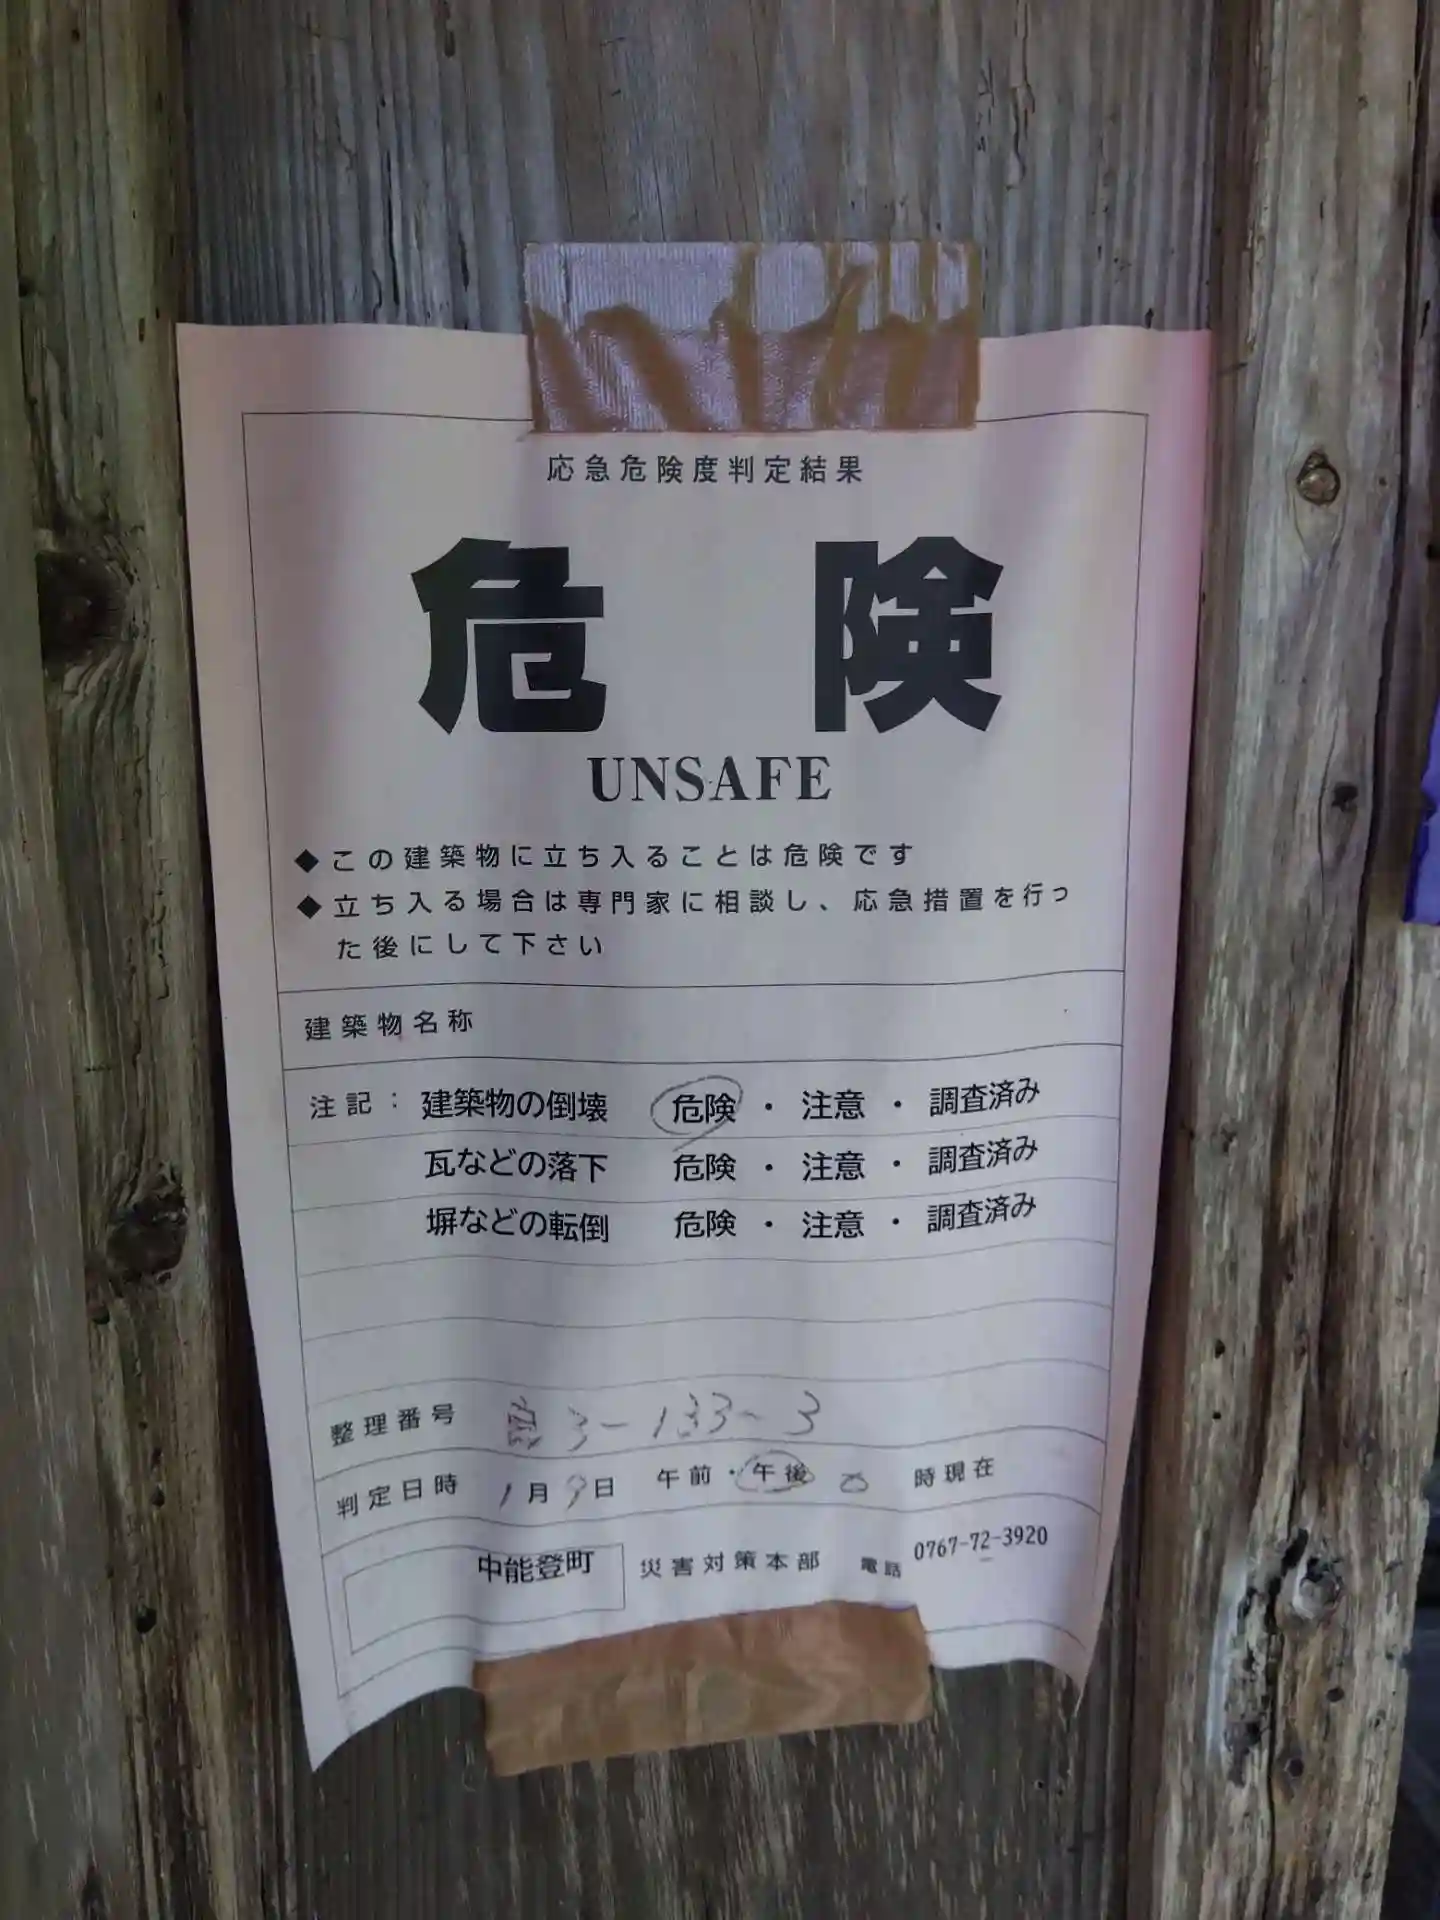 応急危険度判定結果
危険
UNSAFE
◆この建築物に立ち入ることは危険です
◆立ち入る場合は専門家に相談し、応急措置を行っ
た後にして下さい
建築物名称
注記：建築物の倒壊 危険・注意・調査済み
瓦などの落下 危険・注意・調査済み
塀などの転倒 危険・注意・調査済み
整理番号 3-133-3
判定日時 1月9日 午前・午後 時現在
中能登町 災害対策本部 電話 0767-72-3920